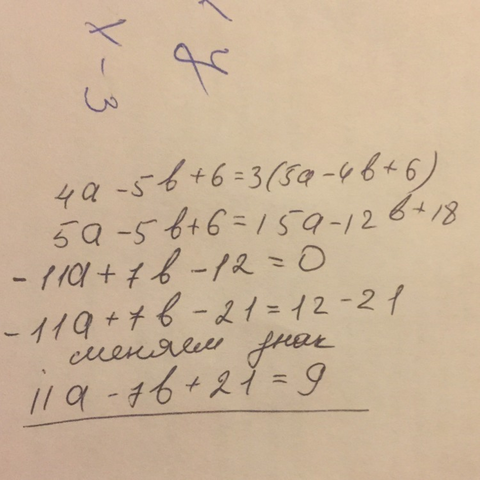 y
x-3
4a-5b+6=3(5a-4b+6)
5a-5b+6=15a-12b+18
-11a+7b-12=0
-11a+7b-21=12-21
меняем знак
11a-7b+21=9